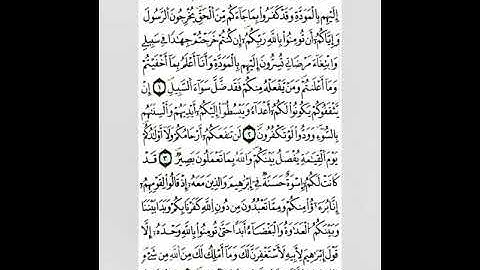 إِلَيْهِم بِالْمَوَدَّةِ وَقَدْ كَفَرُوا۟ بِمَا جَآءَكُم مِّنَ الْحَقِّ يُخْرِجُونَ الرَّسُولَ
وَإِيَّاكُمْ أَن تُومِنُوا۟ بِاللَّهِ رَبِّكُمْ إِن كُنتُمْ خَرَجْتُمْ جِهَٰدًا فِى سَبِيلِى
وَابْتِغَآءَ مَرْضَاتِى تُسِرُّونَ إِلَيْهِم بِالْمَوَدَّةِ وَأَنَا أَعْلَمُ بِمَا أَخْفَيْتُمْ
وَمَا أَعْلَنتُمْ وَمَن يَفْعَلْهُ مِنكُمْ فَقَد ضَّلَّ سَوَآءَ السَّبِيلِ ١ إِنْ
يَّثْقَفُوكُمْ يَكُونُوا۟ لَكُمْ أَعْدَآءً وَيَبْسُطُوا۟ إِلَيْكُمْ أَيْدِيَهُمْ وَأَلْسِنَتَهُم
بِالسُّوٓءِ وَوَدُّوا۟ لَوْ تَكْفُرُونَ ٢ لَن تَنفَعَكُمْ أَرْحَامُكُمْ وَلَا أَوْلَٰدُكُمْ
يَوْمَ الْقِيَٰمَةِ يُفْصَلُ بَيْنَكُمْ وَاللَّهُ بِمَا تَعْمَلُونَ بَصِيرٌ ٣ قَدْ
كَانَتْ لَكُمُ إِسْوَةٌ حَسَنَةٌ فِى إِبْرَٰهِيمَ وَالَّذِينَ مَعَهُ إِذْ قَالُوا۟ لِقَوْمِهِمُ
إِنَّا بُرَءَٰٓؤُا۟ مِنكُمْ وَمِمَّا تَعْبُدُونَ مِن دُونِ اللَّهِ كَفَرْنَا بِكُمْ وَبَدَا بَيْنَنَا
وَبَيْنَكُمُ الْعَدَٰوَةُ وَالْبَغْضَآءُ أَبَدًا حَتَّىٰ تُومِنُوا۟ بِاللَّهِ وَحْدَهُ إِلَّا
قَوْلَ إِبْرَٰهِيمَ لِأَبِيهِ لَأَسْتَغْفِرَنَّ لَكَ وَمَا أَمْلِكُ لَكَ مِنَ اللَّهِ مِن شَىْءٍ